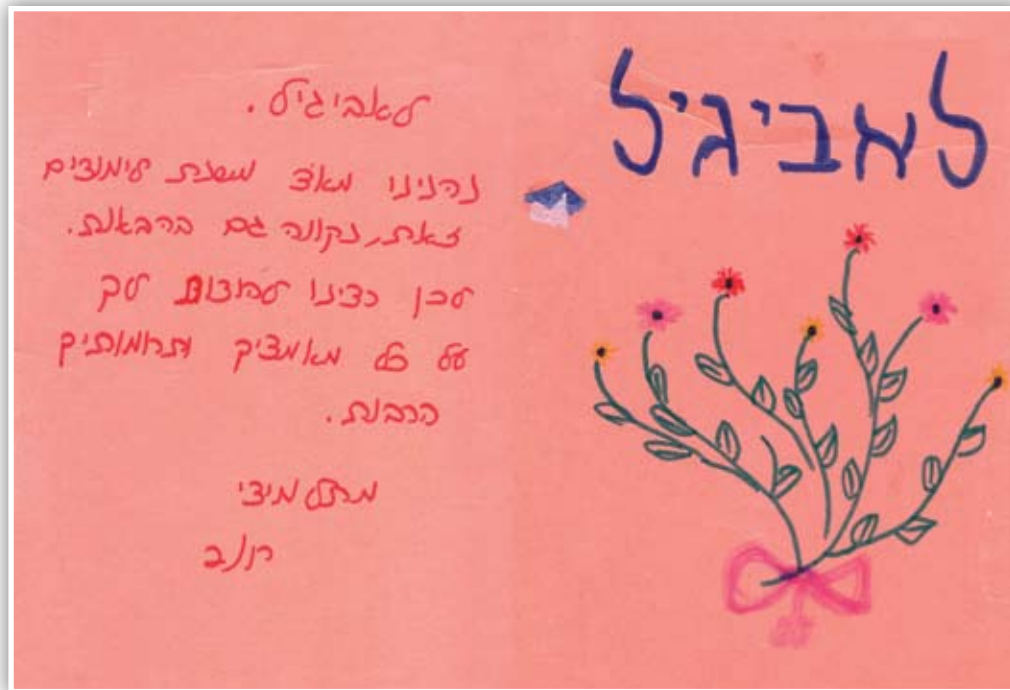 לאביגיל
לאביגיל.
נהנינו מאד משנת לימודים
זאת, נקווה גם בהבאות.
לכן רצינו להודות לך
על כל מאמציך ותרומותיך
הרבות.